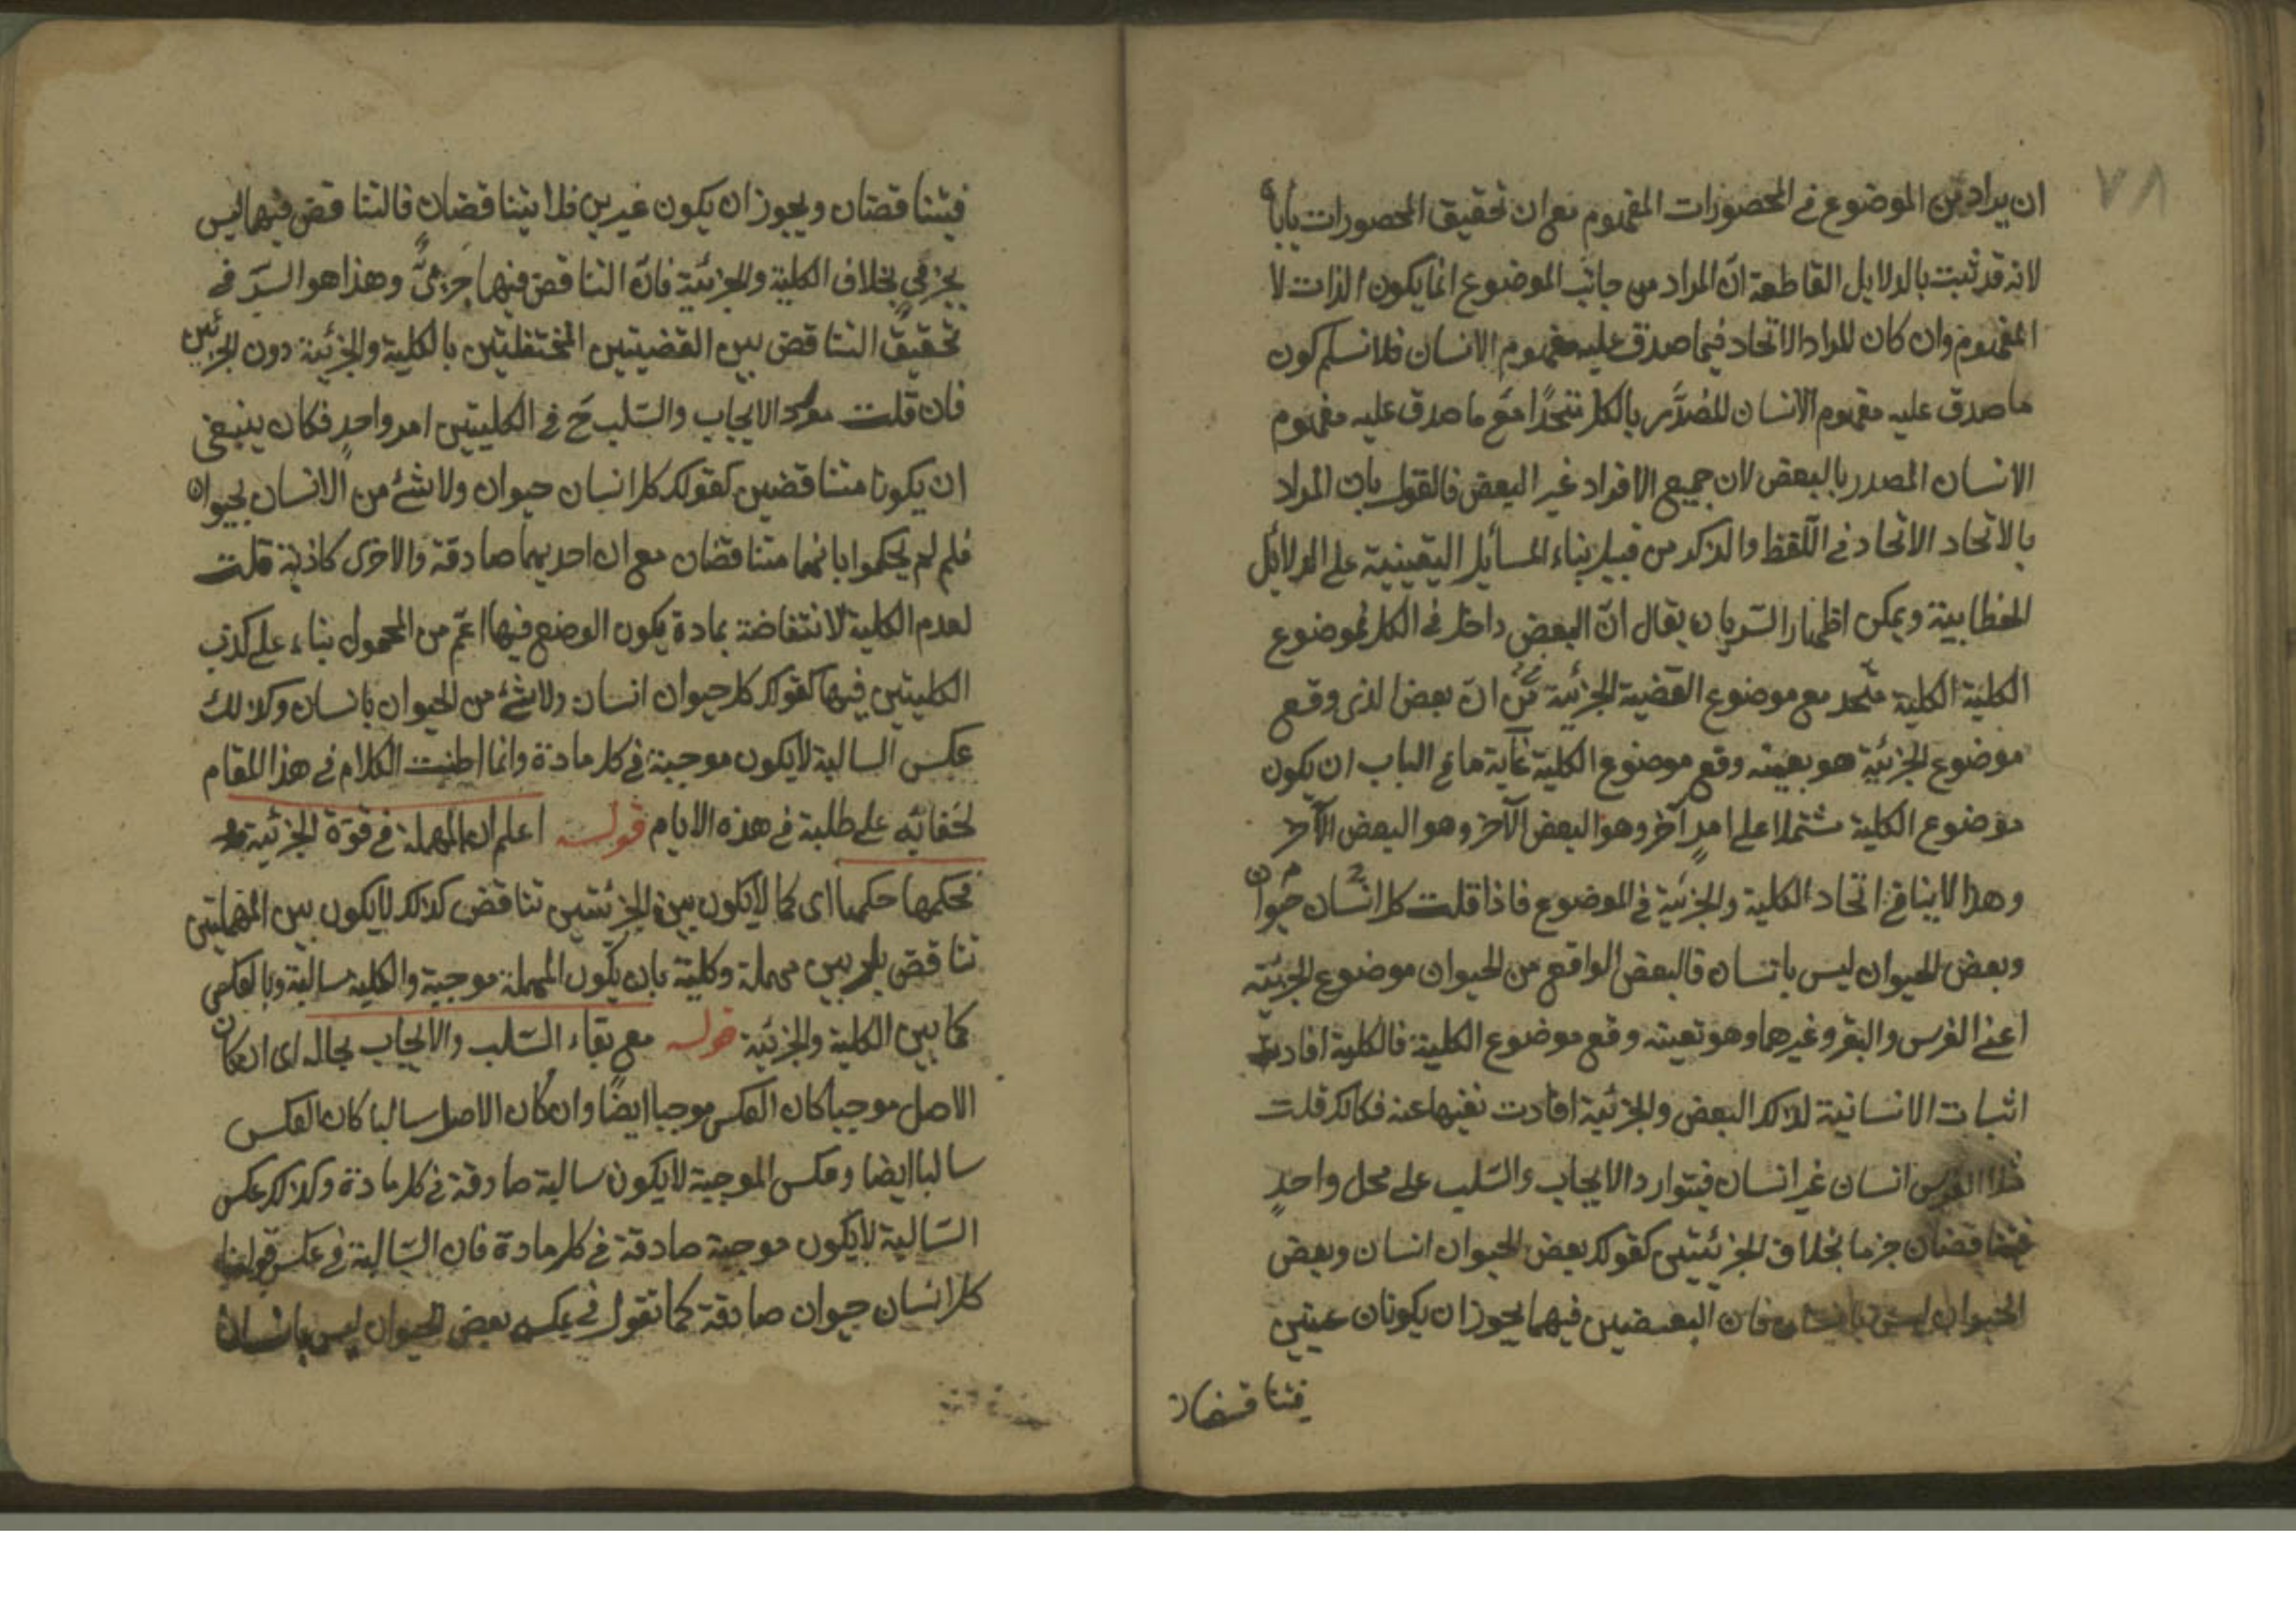 ٧٨
ان يراد من الموضوع في المحصورات المفهوم مع ان تحقيق المحصورات يأباه
لانه قد ثبت بالدلايل القاطعة انّ المراد من جانب الموضوع انما يكون الذات لا
المفهوم وان كان المراد الاتحاد فيما صدق عليه مفهوم الانسان فلا نسلم كون
ما صدق عليه مفهوم الانسان المُصدَّر بالكل متحدًا مع ما صدق عليه مفهوم
الانسان المصدر بالبعض لان جميع الافراد غير البعض فالقول بان المراد
بالاتحاد الاتحاد في اللفظ والذكر من قبيل بناء المسايل اليقينية على الدلائل
الخطابية ويمكن اظهار السّر بان يقال انّ البعض داخل في الكل فموضوع
الكلية الكلية متّحد مع موضوع القضية الجزئية ان بعض الذى وقع
موضوع الجزئية هو بعينه وقع موضوع الكلية غاية ما في الباب ان يكون
موضوع الكلية مشتملا على امرٍ آخر وهو البعض الآخر وهو البعض الآخر
وهذا لا ينافي اتحاد الكلية والجزئية في الموضوع فاذا قلت كل انسان حيوان
وبعض الحيوان ليس بانسان فالبعض الواقع من الحيوان موضوع الجزئية
اعنى الفرس والبقر وغيرها وهو بعينه وقع موضوع الكلية فالكلية افادت
اثبات الانسانية لذلك البعض والجزئية افادت نفيها عنه فكانك قلت
هذا الفرس انسان غير انسان فيتوارد الايجاب والسّلب على محل واحدٍ
فيتناقضان جزما بخلاف الجزئيتين كقولك بعض الحيوان انسان وبعض
الحيوان ليس بانسان فان البعضين فيهما يجوز ان يكونان عينين
فيتناقضان
فيتناقضان ويجوز ان يكون غيرين فلا يتناقضان فالتناقض فيهما ليس
بجزمي بخلاف الكلية والجزئية فانّ التناقض فيها جزمىٌّ وهذا هو السّر في
تحقيق التناقض بين القضيتين المختلفتين بالكلية والجزئية دون الجزئيتين
فان قلت مورد الايجاب والسّلب ح في الكليتين امر واحدٍ فكان ينبغى
ان يكونا متناقضين كقولك كل انسان حيوان ولا شئ من الانسان بحيوان
فلم لم يحكموا بانهما متناقضان مع ان احديهما صادقة والاخرى كاذبة قلت
لعدم الكلية لانتقاضة بمادة يكون الوضع فيها اعّم من المحمول بناء على كذب
الكليتين فيها كقولك كل حيوان انسان ولا شئ من الحيوان بانسان وكذلك
عكس السالبة لا يكون موجبة في كل مادة وانما اطنبت الكلام في هذا المقام
لخفائه على طلبة في هذه الايام قوله اعلم ان المهملة في قوّة الجزئية
فحكمها حكمها اى كما لا يكون بين الجزئيتين تناقض كذلك لا يكون بين المهملتين
تناقض بل بين مهملة وكلية بان يكون المهملة موجبة والكلية سالبة وبالعكس
كما بين الكلية والجزئية قوله مع بقاء السّلب والايجاب بحاله اى ان كان
الاصل موجبا كان العكس موجبا ايضًا وان كان الاصل سالبا كان العكس
سالبا ايضا وعكس الموجبة لا يكون سالبة صادقة في كل مادة وكذلك عكس
السّالبة لا يكون موجبة صادقة في كل مادة فان السّالبة في عكس قولنا
كل انسان حيوان صادقة كما تقول في عكسه بعض الحيوان ليس بانسان